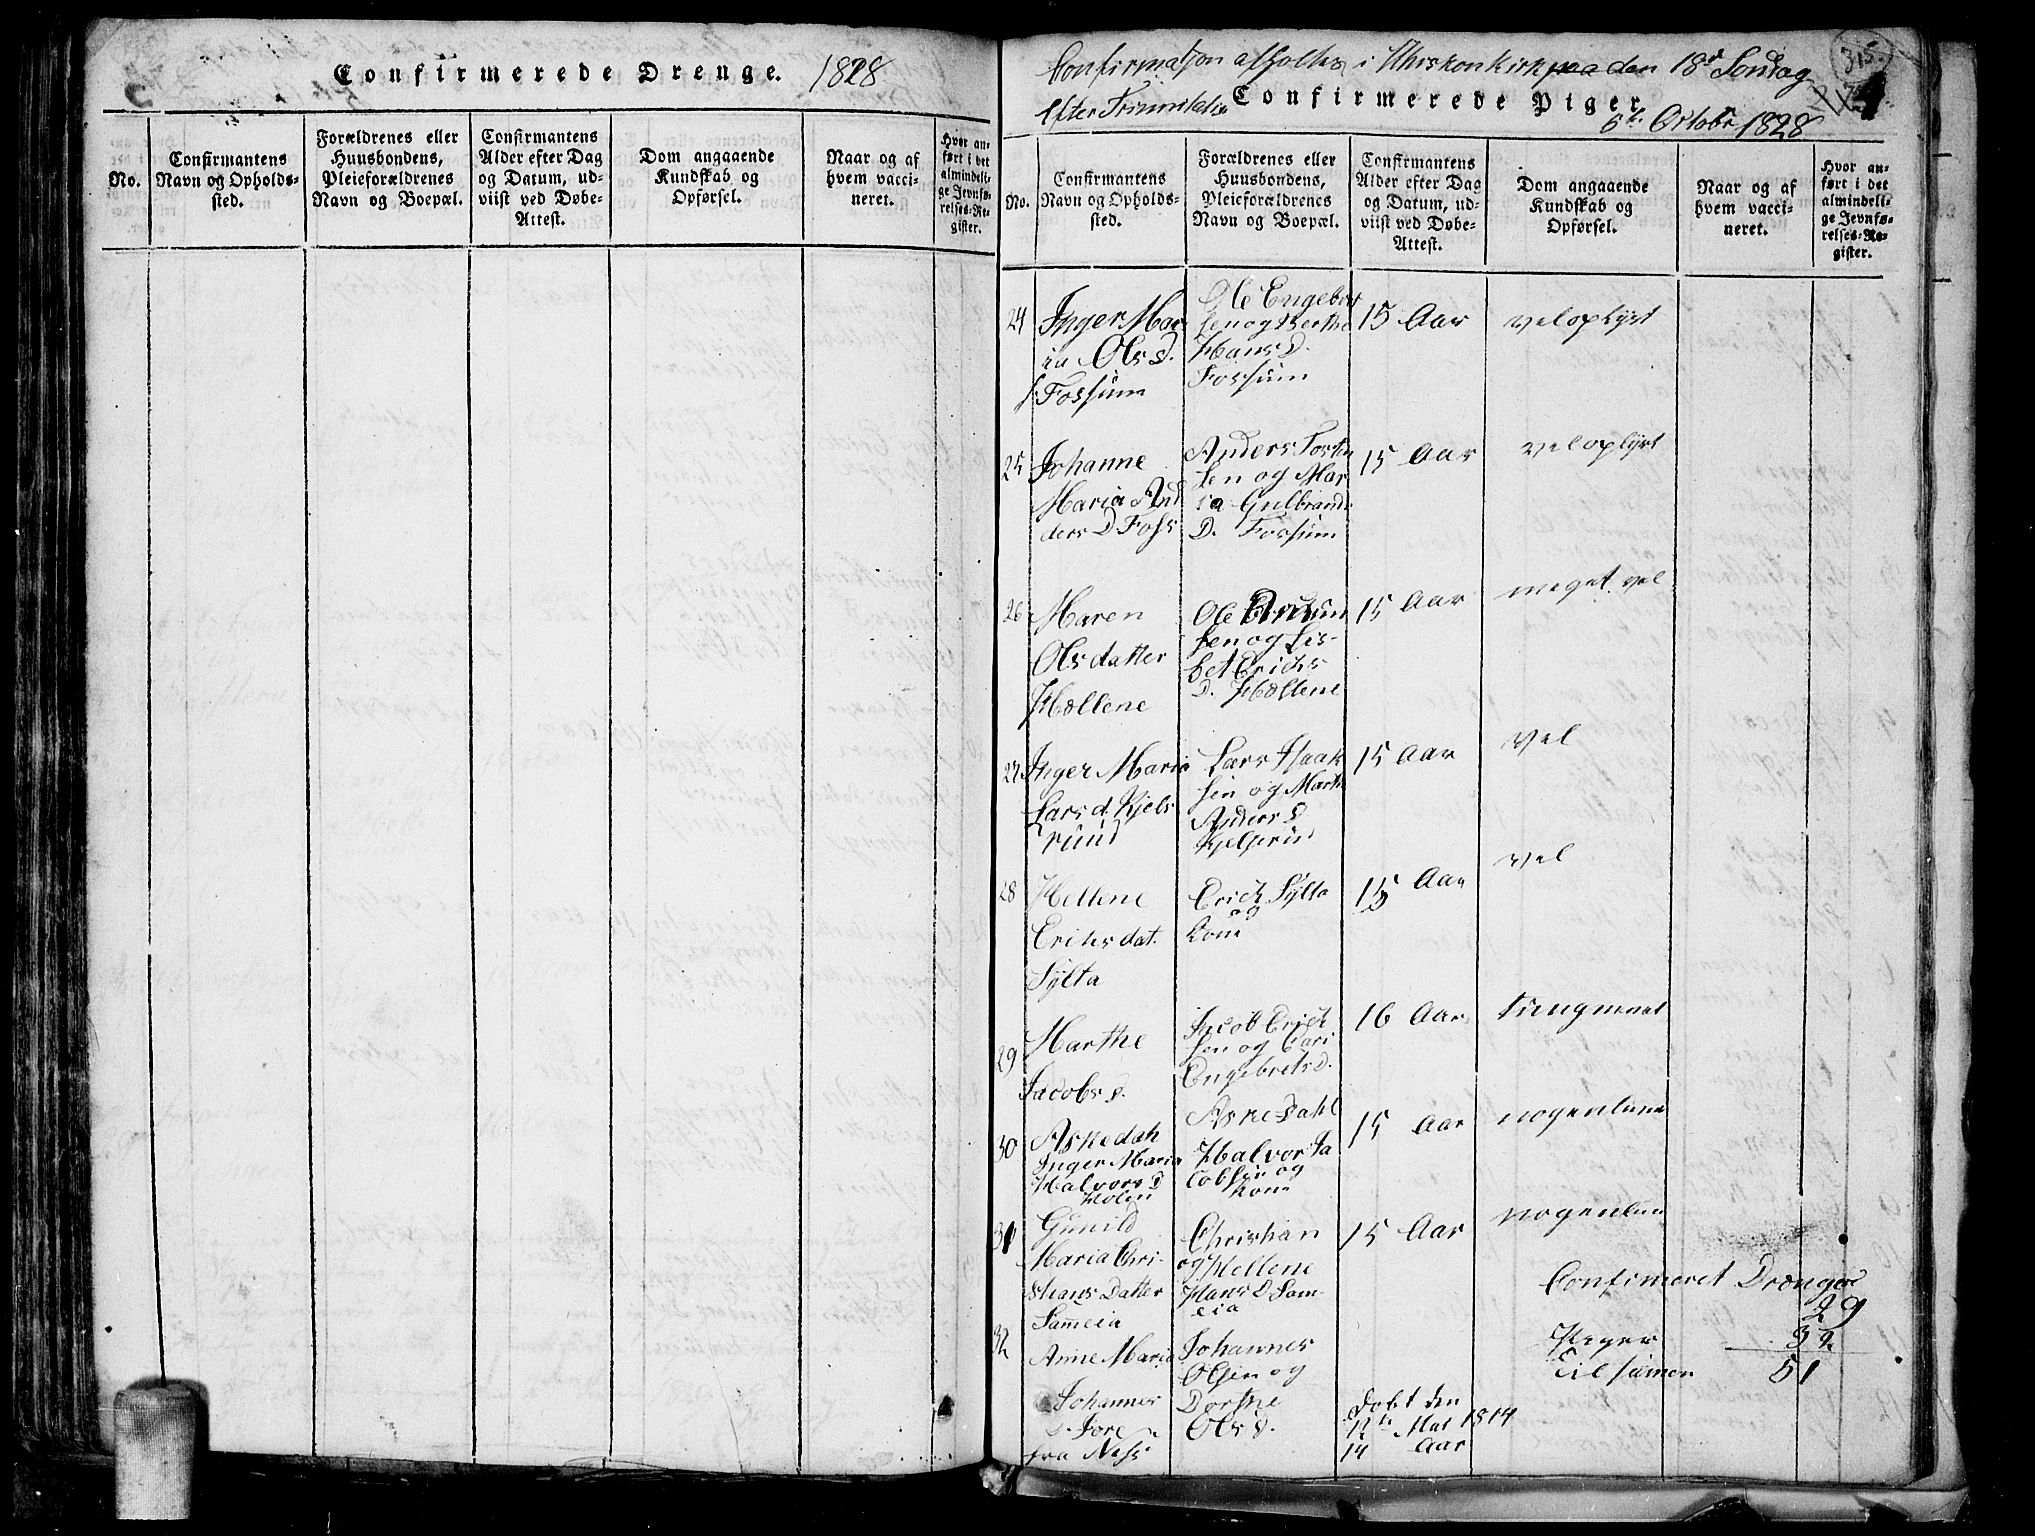 Confirmerede Drenge. 1828
No.
Confirmantens
Navn og Opholds-
sted.
Forældrenes eller
Huusbondens,
Pleieforældrenes
Navn og Boepæl.
Confirmantens
Alder efter Dag
og Datum, ud-
viist ved Døbe-
Attest.
Dom angaaende
Kundskab og
Opførsel.
Naar og af
hvem vacci-
neret.
Hvor an-
ført i det
almindeli-
ge Jevnfø-
relses-Re-
gister.
Confirmatjon afholte i Uhrskonkirk paa den 18d Söndag
efter Trinnitatis
315.
Confirmerede Piger
5te Octobr 1828
No.
Confirmantens
Navn og Opholds-
sted.
Forældrenes eller
Huusbondens,
Pleieforældrenes
Navn og Boepæl.
Confirmantens
Alder efter Dag
og Datum, ud-
viist ved Døbe-
Attest.
Dom angaaende
Kundskab og
Opførsel.
Naar og af
hvem vacci-
neret.
Hvor an-
ført i det
almindeli-
ge Jevnfø-
relses-Re-
gister.
24
Inger Mar
ia Ols D.
Fossum
Ole Engebre
sen og Berthe
Hans D.
Fossum
15 Aar
vel oplyst
25
Johanne
Maria And
ders D Foss
Anders Torsten
sen og Mar
ia Gulbrands
D. Fossum
15 Aar
vel oplyst
26
Maren
Olsdatter
Hællene
Ole
sen og Lis-
bet Erichs
D. Hællene
15 Aar
meget vel
27
Inger Maria
Lars d. Kjels
rund
Lars Isaak
sen og Marth
Anders D
Kjelsrud
15 Aar
vel
28
Hellene
Eriksdat.
Sylta
Erich Sylta
og
Kone
15 Aar
vel
29
Marthe
Jacobs D.
Jacob Erich
sen og Cari
Engebrets D.
16 Aar
tungnemet
30
Askedah
Inger Maria
Halvors D
Holen
Askedahl
Halvor Ja
cobsen og
Kone
15 Aar
nogenlune
31
Gunild
Maria Chri-
stians Datter
Sameia
Christian
og Hellene
Hans D Sam-
eia
15 Aar
nogenlun
Confimeret Drænger
29
Peger 32
Til samen 51
32
Anne Maria
Johannes
D. Tore
fra Ness
Johannes
Olsen og
Dorthe
Ols D.
Dobt den
12te Mai 1814
14 Aar